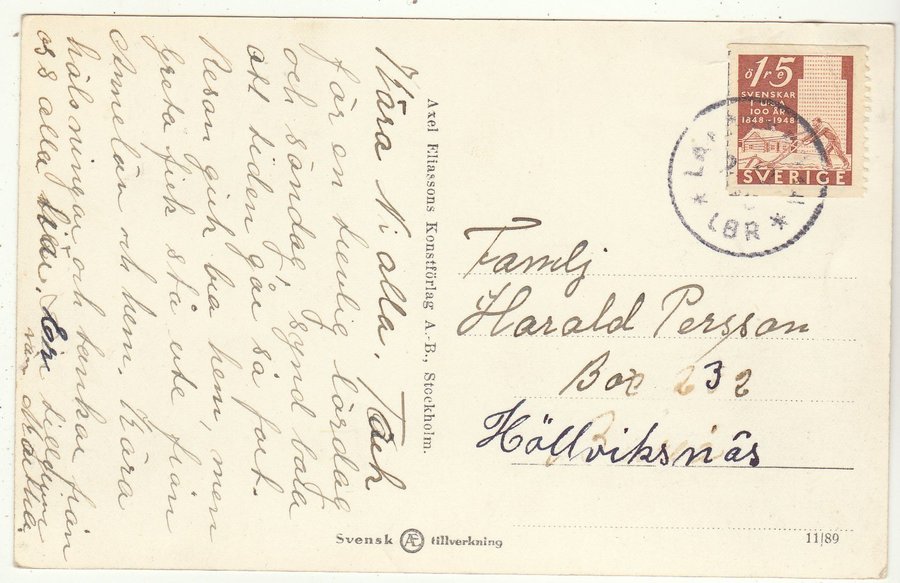 Kära Ni alla. Tack
för en trevlig lördag
och söndag, synd bara
att tiden går så fort.
Resan gick bra hem, men
Greta fick stå ute från
Anmelün och hem. Kära
hälsningar och tankar från
oss alla
Er tilldgivne
vän Märtha
Axel Eliassons Konstförlag A.-B., Stockholm.
öre 15
SVENSKAR
100 ÅR
1848-1948
SVERIGE
LBR
Familj
Harald Persson
Box 232
Höllviksnäs
Svensk Æ tillverkning
11/89